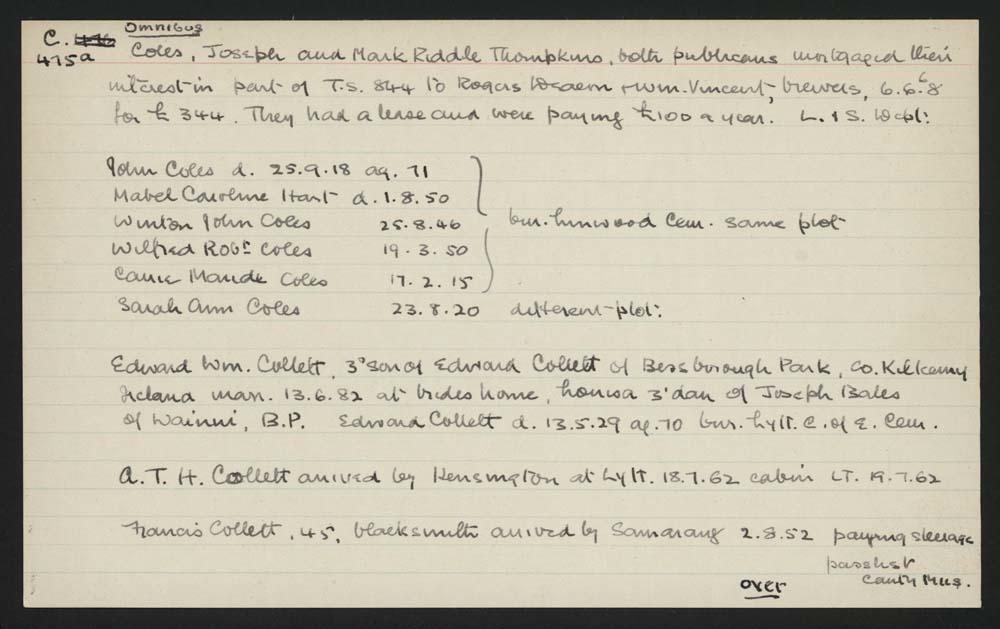 C. Omnibus
475a Coles, Joseph and Mark Riddle Thompkins, both publicans mortgaged their
interest in part of T.S. 844 to Rogers + Wm. Vincent, brewers, 6.6.68
for £344. They had a lease and were paying £100 a year. L. & S. Dept:
John Coles d. 25.9.18 ag. 71
Mabel Caroline Hart d. 1.8.50
Winton John Coles 25.8.46 bur. Linwood Cem. same plot
Wilfred Robt Coles 19.3.50
Carrie Maude Coles 17.2.15
Sarah Ann Coles 23.8.20 different plot:
Edward Wm. Collett, 3° son of Edward Collett of Bessborough Park, Co. Kilkenny
Ireland marr. 13.6.82 at brides home, Louisa 3' dau of Joseph Bales
of Wainui, B.P. Edward Collett d. 13.5.29 ag. 70 bur. Lytt. C. of E. Cem.
A. T. H. Collett arrived by Kensington at Lytt. 18.7.62 cabin LT. 19.7.62
Francis Collett, 45, blacksmith arrived by Samarang 2.8.52 paying steerage
passlist
Canty Mus.
over